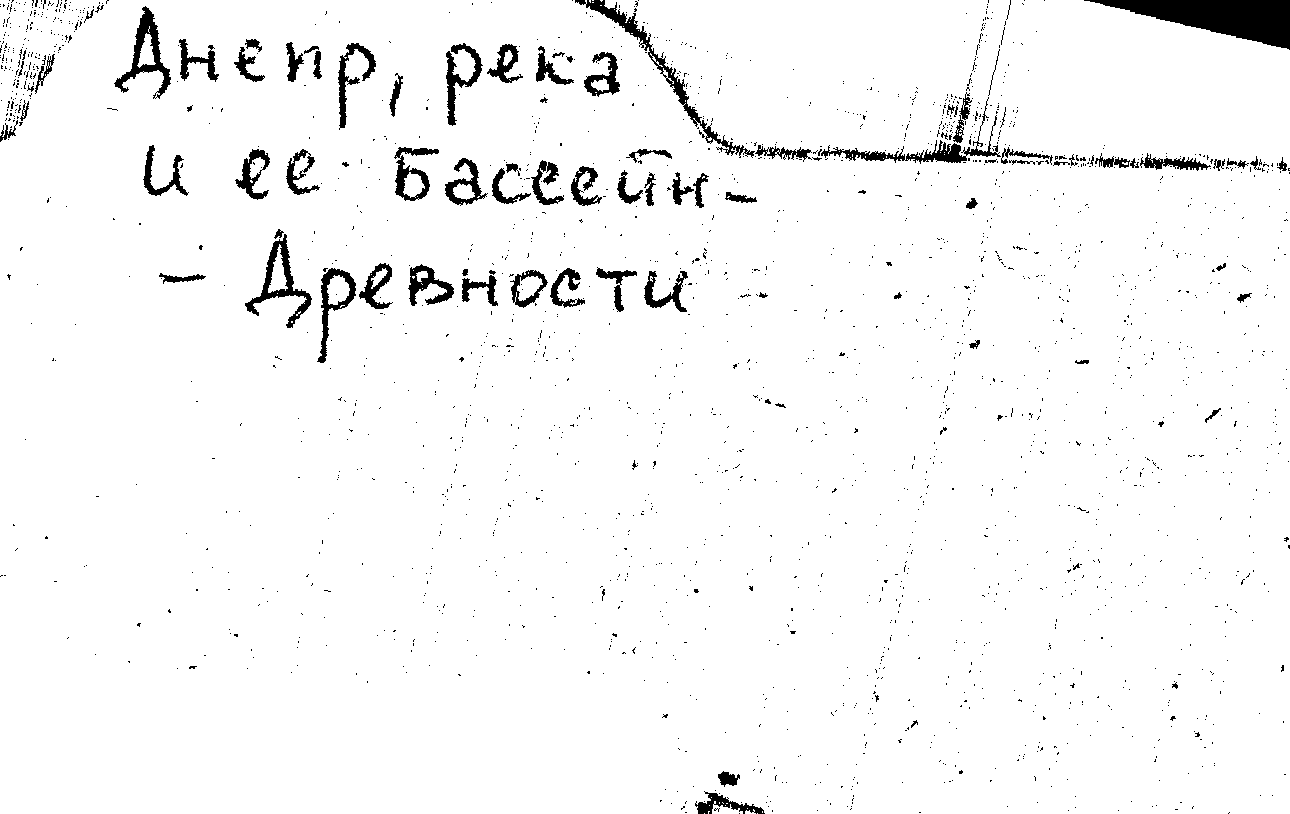 Днепр, река
и ее бассейн-
- Древности